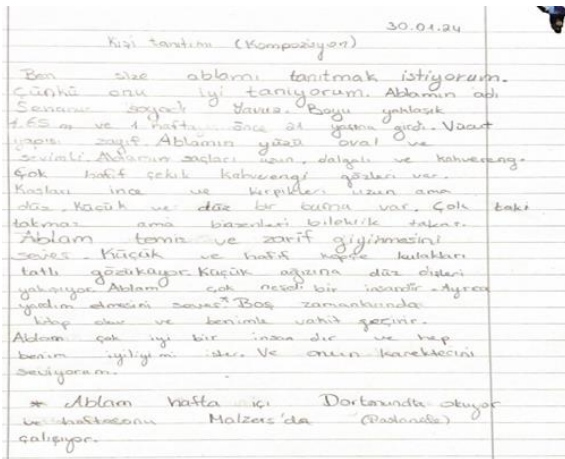 30.01.24
Kişi tanıtımı (Kompozisyon)
Ben size ablamı tanıtmak istiyorum.
Çünkü onu iyi tanıyorum. Ablamın adı
soyadı Yavuz. Boyu yaklaşık
1.65 m ve 1 hafta önce 21 yaşına girdi. Vücut
yapısı zayıf. Ablamın yüzü oval ve
sevimli. Ablamın saçları uzun, dalgalı ve kahvereng.
Çok hafif çekik kahverengi gözleri var.
Kaşları ince ve kirpikleri uzun ama
düz. Küçük ve düz bir burna var. Çok takı
takmaz ama bazenleri bileklik takar.
Ablam temiz ve zarif giyinmesini
sever. Küçük ve hafif kepçe kulakları
tatlı gözüküyor. Küçük ağızına düz dişleri
yakışıyor. Ablam çok neşeli bir insandır. Ayrıca
yardım etmesini sever.* Boş zamanlarında
kitap okur ve benimle vakit geçirir.
Ablam çok iyi bir insan dır ve hep
benim iyiliğimi ister. Ve onun karekterini
seviyorum.
* Ablam hafta içi Dortmundta okuyor
ve haftasonu Malzers'da (Pastanede)
çalışıyor.